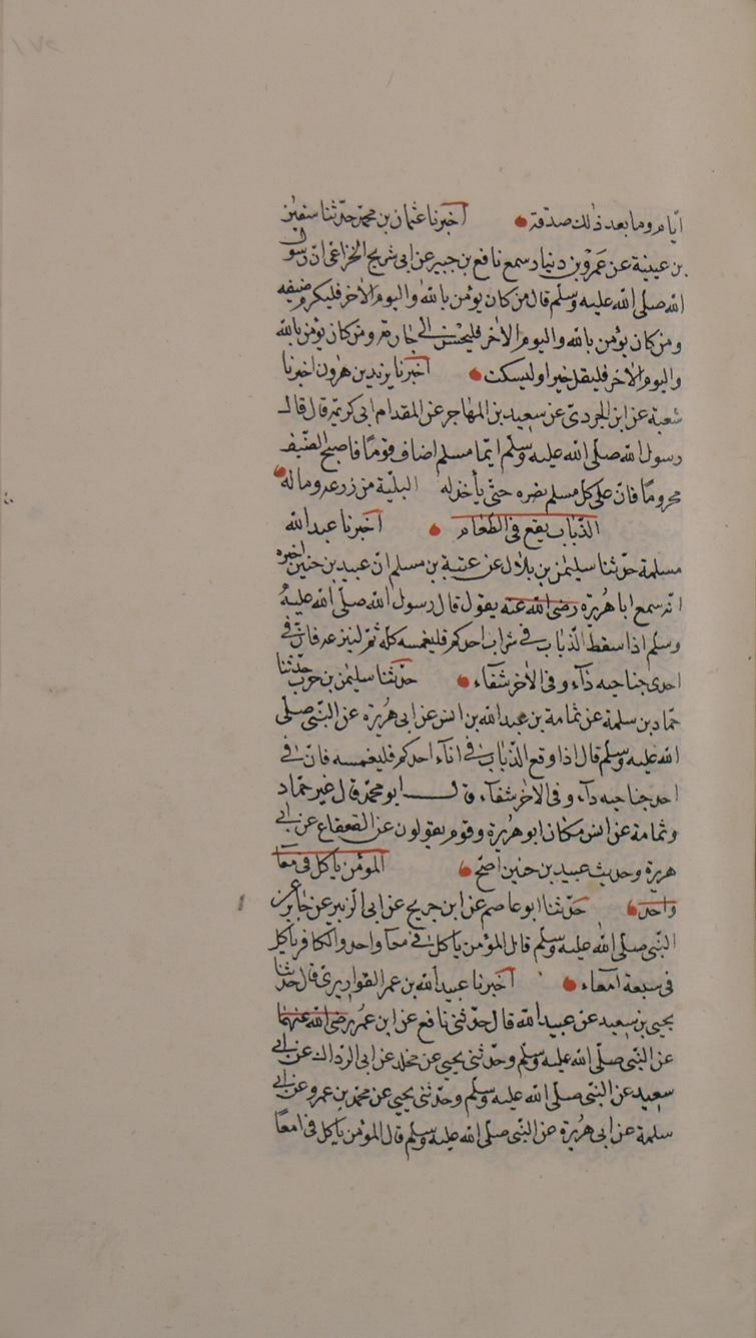 ايام وما بعد ذلك صدقة اخبرنا عثمان بن محمد حدثنا سفين
بن عيينة عن عمرو بن دينار سمع نافع بن جبير عن ابى شريح الخزاعى ان رسول
الله صلى الله عليه وسلم قال من كان يؤمن بالله واليوم الاخر فليكرم ضيفه
ومن كان يؤمن بالله واليوم الاخر فليحسن الى جاره ومن كان يؤمن بالله
واليوم الاخر فليقل خيرا او ليسكت اخبرنا يزيد بن هرون اخبرنا
شعبة عن ابن الجودى عن سعيد بن المهاجر عن المقدام ابى كريمة قال قال
رسول الله صلى الله عليه وسلم ايما مسلم اضاف قوما فاصبح الضيف
محروما فان على كل مسلم نصره حتى يأخذ له البلية من زرعه وماله
الذباب يقع فى الطعام اخبرنا عبد الله
مسلمة حدثنا سليمن بن بلال عن عتبة بن مسلم ان عبيد بن حنين اخبره
انه سمع ابا هريرة رضى الله عنه يقول قال رسول الله صلى الله عليه
وسلم اذا سقط الذباب فى شراب احدكم فليغمسه كله ثم لينزعه فان فى
احدى جناحيه داء وفى الاخر شفاء حدثنا سليمن بن حرب حدثنا
حماد بن سلمة عن ثمامة بن عبد الله بن انس عن ابى هريرة عن النبى صلى
الله عليه وسلم قال اذا وقع الذباب فى اناء احدكم فليغمسه فان فى
احد جناحيه داء وفى الاخر شفاء قال ابو محمد قال غير حماد
وثمامة عن انس مكان ابو هريرة وقوم يقولون عن القعقاع عن ابى
هريرة وحديث عبيد بن حنين اصح المؤمن يأكل فى معا
واحد حدثنا ابو عاصم عن ابن جريج عن ابى الزبير عن جابر عن
النبى صلى الله عليه وسلم قال المؤمن يأكل فى معا واحد والكافر يأكل
فى سبعة امعاء اخبرنا عبيد الله بن عمر القواريرى قال حدثنا
يحيى بن سعيد عن عبيد الله قال حدثنى نافع عن ابن عمر رضى الله عنهما
عن النبى صلى الله عليه وسلم وحدثنى يحيى عن مجالد عن ابى الوداك عن ابى
سعيد عن النبى صلى الله عليه وسلم وحدثنى يحيى عن محمد بن عمرو عن ابى
سلمة عن ابى هريرة عن النبى صلى الله عليه وسلم قال المؤمن يأكل فى امعا